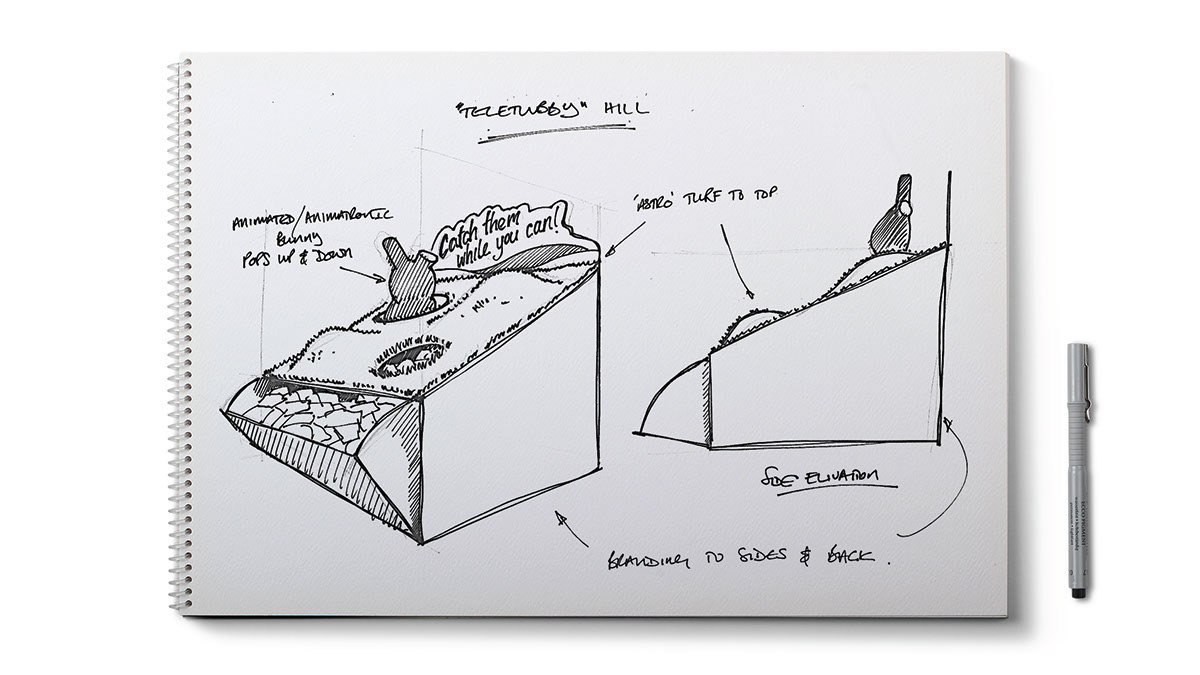 "TELETUBBY" HILL
ANIMATED/ANIMATRONIC
BUNNY
POPS UP & DOWN
Catch them
while you can!
'ASTRO' TURF TO TOP
SIDE ELIVATION
BRANDING TO SIDES & BACK.
ECCO PIGMENT